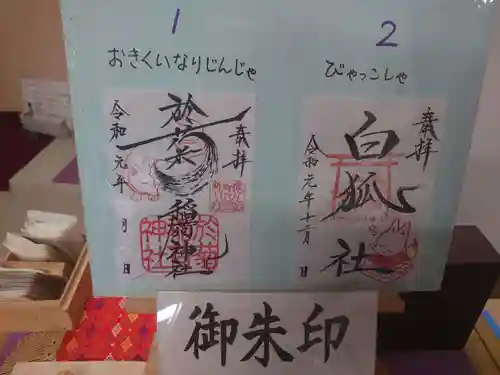 1
おきくいなりじんじゃ
奉拝
於菊稲荷神社
令和元年 月 日
2
びゃっこしゃ
奉拝
白狐社
令和元年十二月
御朱印